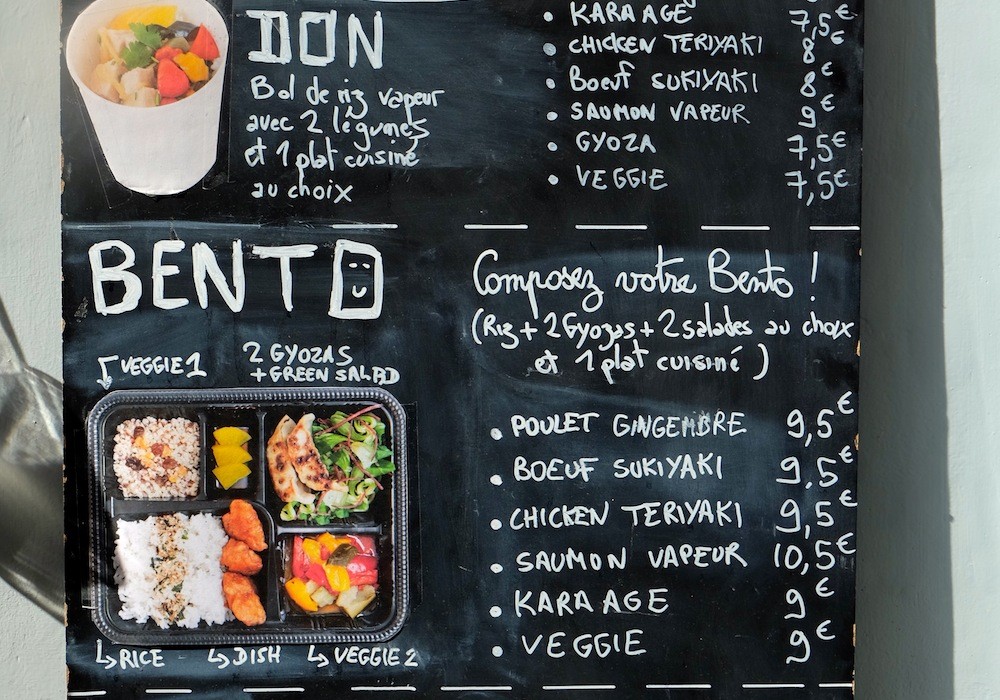 DON
Bol de riz vapeur
avec 2 légumes
et 1 plat cuisiné
au choix
• KARA AGE 7,5€
• CHICKEN TERIYAKI 8€
• Boeuf SUKIYAKI 8€
• SAUMON VAPEUR 9€
• GYOZA 7,5€
• VEGGIE 7,5€
BENTO
Composez votre Bento !
(Riz + 2 Gyozas + 2 salades au choix
et 1 plat cuisiné )
VEGGIE 1
2 GYOZAS
+ GREEN SALAD
RICE
DISH
VEGGIE 2
• POULET GINGEMBRE 9,5€
• BOEUF SUKIYAKI 9,5€
• CHICKEN TERIYAKI 9,5€
• SAUMON VAPEUR 10,5€
• KARA AGE 9€
• VEGGIE 9€